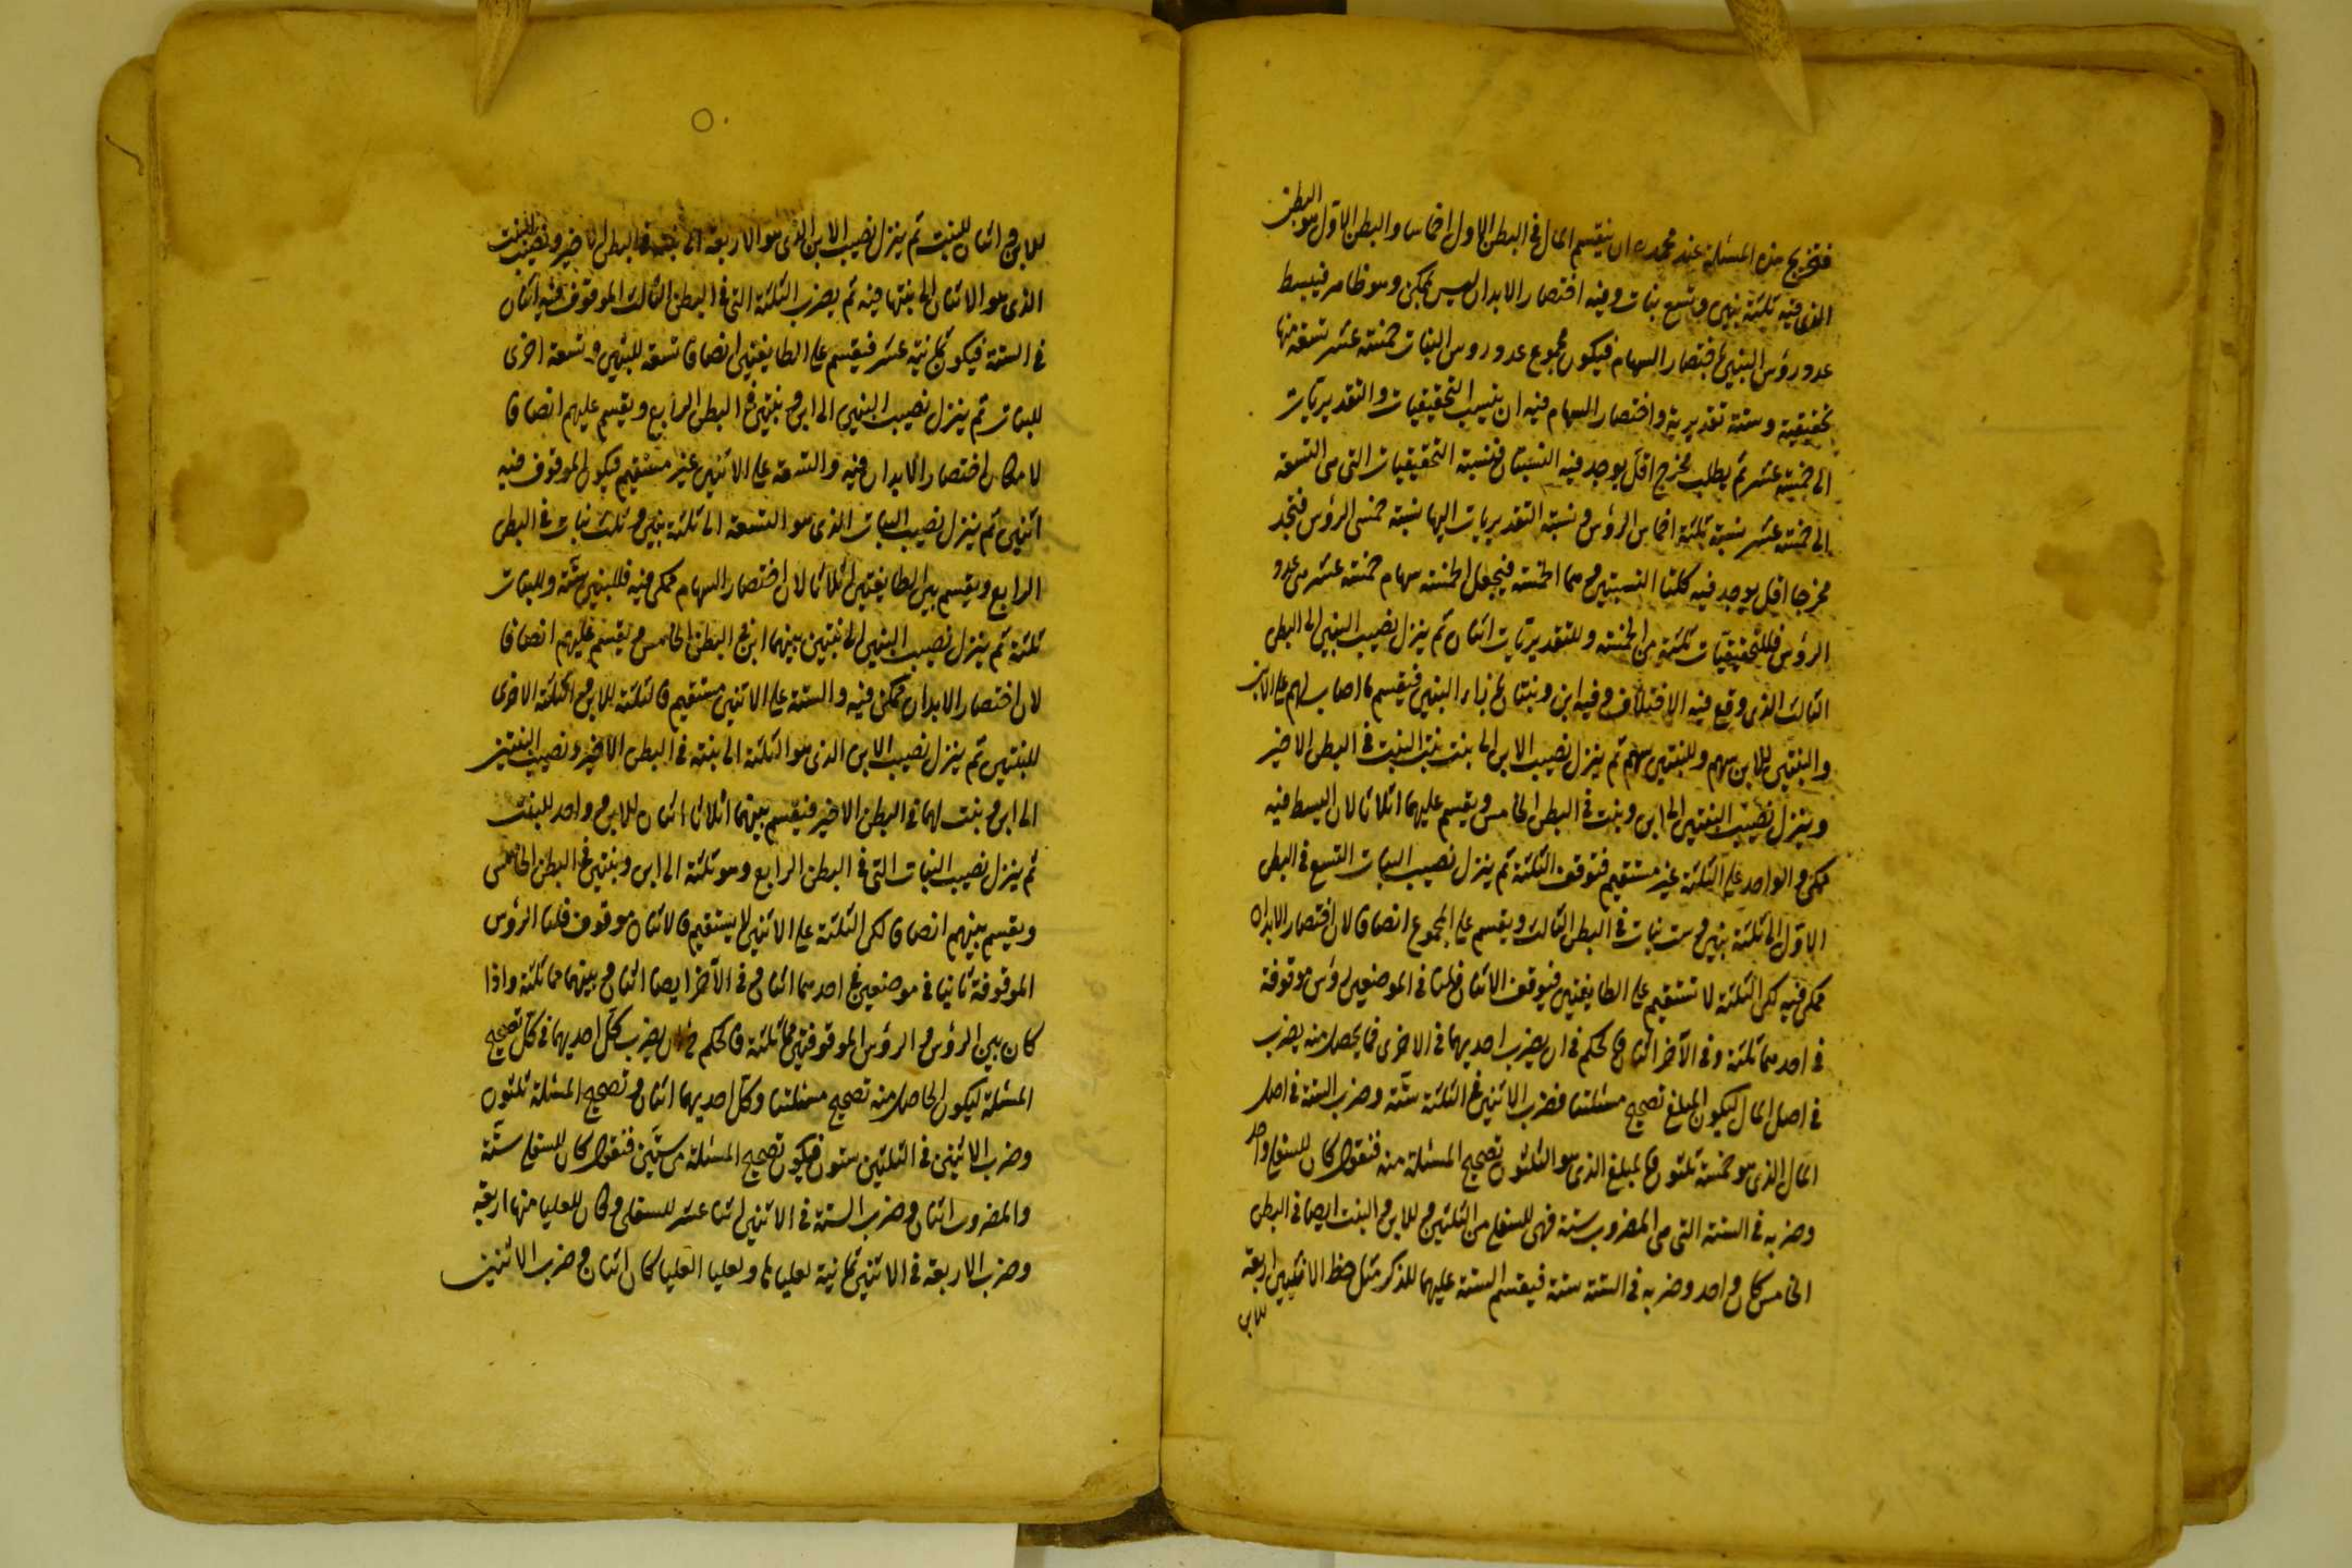 فتخريج هذه المسئلة عند محمد ره ان ينقسم المال في البطن الاول اخماسا والبطن الاول هو البطن
الذى فيه ثلثة بنين وتسع بنات وفيه اختصار الابدان ليس بممكن وهو ظاهر فيبسط
عدد رؤس البنين لاختصار السهام فيكون مجموع عدد روس البنات خمسة عشر تسعة منها
تحقيقية وستة تقديرية واختصار السهام فيه ان ينسب التحقيقيات والتقديريات
الى خمسة عشر ثم يطلب مخرج اقل يوجد فيه النسبتان فنسبة التحقيقيات التى هى التسعة
الى خمسة عشر نسبة ثلثة اخماس الرؤس ونسبة التقديريات اليها نسبة خمسى الرؤس فتجد
مخرجا اقل يوجد فيه كلتا النسبتين وهما الخمسة فيجعل الخمسة سهام خمسة عشر من عدد
الرؤس فللتحقيقيات ثلثة من الخمسة وللتقديريات اثنان ثم ينزل نصيب البنين الى البطن
الثالث الذى وقع فيه الاختلاف وفيه ابن وبنتان بازاء البنين فيقسم ما اصاب لهم على الابن
والبنتين للابن سهم وللبنتين سهم ثم ينزل نصيب الابن الى بنت بنت البنت في البطن الاخير
وينزل نصيب البنتين الى ابن وبنت في البطن الخامس ويقسم عليهما اثلاثا لان البسط فيه
ممكن والواحد على الثلثة غير مستقيم فتوقف الثلثة ثم ينزل نصيب البنات التسع في البطن
الاول الى ثلثة بنين وست بنات في البطن الثالث ويقسم على المجموع انصافا لان اختصار الابدان
ممكن فيه لكن الثلثة لا تستقيم على الطايفتين فيوقف الاثنان فلنا في الموضعين رؤس موقوفة
في احدهما ثلثة وفي الآخر اثنان فالحكم في ان يضرب احديهما في الاخرى فما يحصل منه يضرب
في اصل المال ليكون المبلغ تصحيح مسئلتنا فضرب الاثنين في الثلثة ستة وضرب الستة في اصل
المال الذى هو خمسة ثلثون فالمبلغ الذى هو الثلثون تصحيح المسئلة منه فنقول كان للسفلى واحد
وضربه في الستة التى هى المضروب ستة فهى للسفلى من الثلثين وللابن والبنت ايضا في البطن
الخامس كان واحد وضربه في الستة ستة فيقسم الستة عليهما للذكر مثل حظ الانثيين اربعة
للابن
للابن واثنان للبنت ثم ينزل نصيب الابن الذى هو الاربعة الى بنته في البطن الاخير ونصيب البنت
الذى هو الاثنان الى بنتها فيه ثم يضرب الثلثة التى في البطن الثالث الموقوف فيه اثنان
في الستة فيكون ثمانية عشر فيقسم على الطايفتين انصافا تسعة للبنين وتسعة اخرى
للبنات ثم ينزل نصيب البنين الى ابن وبنتين في البطن الرابع ويقسم عليهم انصافا
لامكان اختصار الابدان فيه والتسعة على الاثنين غير مستقيم فيكون الموقوف فيه
اثنين ثم ينزل نصيب البنات الذى هو التسعة الى ثلثة بنين وثلث بنات في البطن
الرابع ويقسم بين الطايفتين اثلاثا لان اختصار السهام ممكن فيه فللبنين ستة وللبنات
ثلثة ثم ينزل نصيب البنين الى بنتين بينهما ابن في البطن الخامس ويقسم عليهم انصافا
لان اختصار الابدان ممكن فيه والستة على الاثنين مستقيم فالثلثة للابن والثلثة الاخرى
للبنتين ثم ينزل نصيب الابن الذى هو الثلثة الى بنته في البطن الاخير ونصيب البنتين
الى ابن وبنت لهما في البطن الاخير فيقسم بينهما اثلاثا اثنان للابن وواحد للبنت
ثم ينزل نصيب البنات التى في البطن الرابع وهو ثلثة الى ابن وبنتين في البطن الخامس
ويقسم بينهم انصافا لكن الثلثة على الاثنين لا يستقيم فالاثنان موقوف فلنا الرؤس
الموقوفة ثانيا في موضعين في احدهما اثنان وفي الآخر ايضا اثنان وبينهما مماثلة واذا
كان بين الرؤس والرؤس الموقوفتين مماثلة فالحكم ان يضرب كل احديهما في كل تصحيح
المسئلة ليكون الحاصل منه تصحيح مسئلتنا وكل احديهما اثنان وتصحيح المسئلة ثلثون
وضرب الاثنين في الثلثين ستون فيكون تصحيح المسئلة من ستين فنقول كان للسفلى ستة
والمضروب اثنان وضرب الستة في الاثنين اثنا عشر للسفلى وكان للعليا منها اربعة
وضرب الاربعة في الاثنين ثمانية لعلياها ولعليا العليا كان اثنان وضرب الاثنين